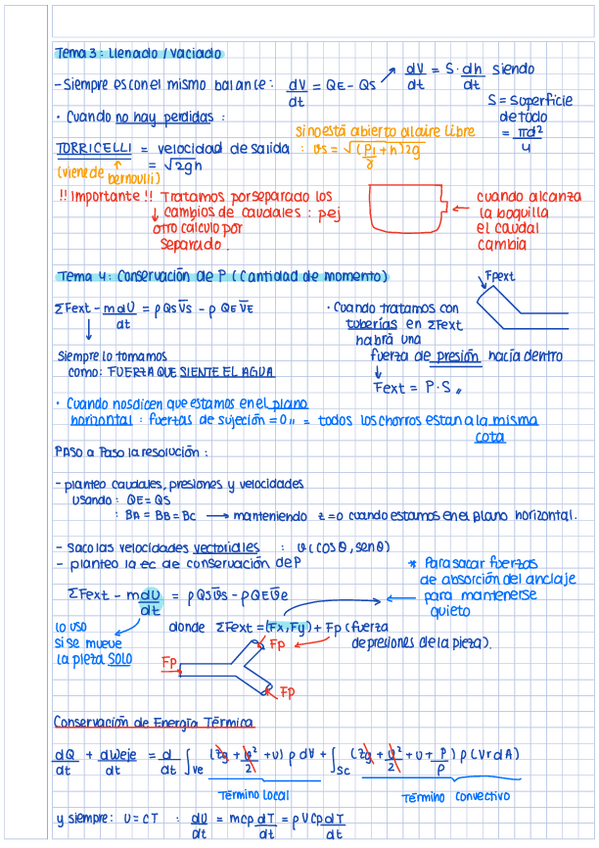 Tema 3: Llenado / Vaciado
- Siempre es con el mismo balance: dV/dt = QE - QS ↗ dV/dt = S · dh/dt siendo
S = Superficie
de todo
= πd²/4
· Cuando no hay perdidas:
si no está abierto al aire libre
TORRICELLI = velocidad de salida : vs = √((P1/γ + h) 2g)
= √2gh
(viene de bernoulli)
!! Importante !! Tratamos por separado los
↓ cambios de caudales: pej
otro cálculo por
separado.
← cuando alcanza
la boquilla
el caudal
cambia
Tema 4: Conservación de P (Cantidad de momento)
ΣFext - m dU/dt = ρ QS V̅S - ρ QE V̅E
Siempre lo tomamos
como: FUERZA QUE SIENTE EL AGUA
Fpext
· Cuando tratamos con
tuberías en ΣFext
habrá una
fuerza de presión hacia dentro
↓
Fext = P·S
· Cuando nos dicen que estamos en el plano
horizontal: fuerzas de sujeción = 0 = todos los chorros estan a la misma
cota
PASO a Paso la resolución:
- planteo caudales, presiones y velocidades
usando: QE = QS
: BA = BB = BC → manteniendo z=0 cuando estamos en el plano horizontal.
- Saco las velocidades vectoriales : v(cosθ, senθ)
- planteo la ec de conservación de P
* Para sacar fuerzas
de absorción del anclaje
← para mantenerse
quieto
ΣFext - m dU/dt = ρ QS v̅s - ρ QE v̅e
lo uso
si se mueve
la pieza SOLO
donde ΣFext = (Fx, Fy) + Fp (fuerza
de presiones de la pieza).
Fp
Fp
Fp
Conservación de Energía Térmica
dQ/dt + dWeje/dt = d/dt ∫Ve (zg + v²/2 + u) ρ dV + ∫SC (zg + v²/2 + u + P/ρ) ρ (Vr dA)
Término Local
Término Convectivo
y siempre: U = cT : dU/dt = mcp dT/dt = ρVCp dT/dt